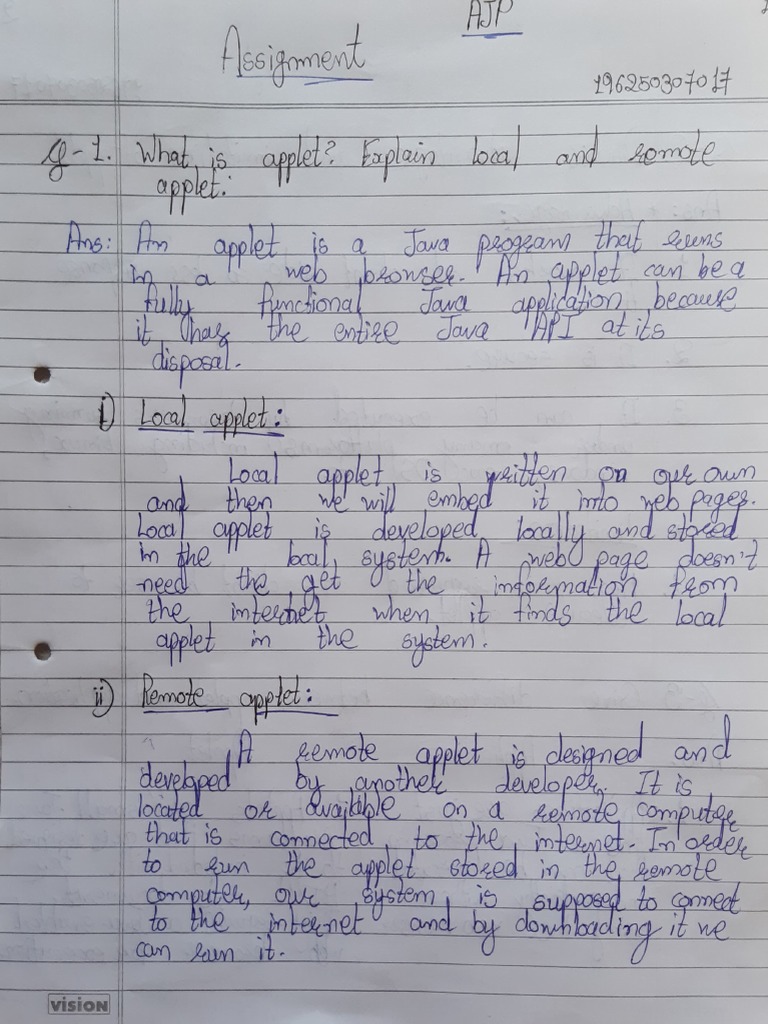 AJP
Assignment
196250307017
Q-1. What is applet? Explain local and remote
applet:
Ans: An applet is a Java program that runs
in a web browser. An applet can be a
fully functional Java application because
it has the entire Java API at its
disposal.
i) Local applet:
Local applet is written on our own
and then we will embed it into web pages.
Local applet is developed locally and stored
in the local system. A web page doesn't
need the get the information from
the internet when it finds the local
applet in the system.
ii) Remote applet:
A remote applet is designed and
developed by another developer. It is
located or available on a remote computer
that is connected to the internet. In order
to run the applet stored in the remote
computer, our system is supposed to connect
to the internet and by downloading it we
can run it.
vision